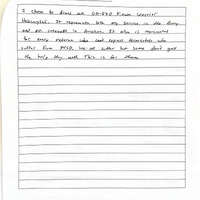 I chose to draw an OH-58D Kiowa Warrior
Helicopter. It represents both my service in the Army
and my interests in Aviation. It also is
for every veteran who cant express themselves who
suffer from PTSD. We all suffer but some don't get
the help they need. This is for them.